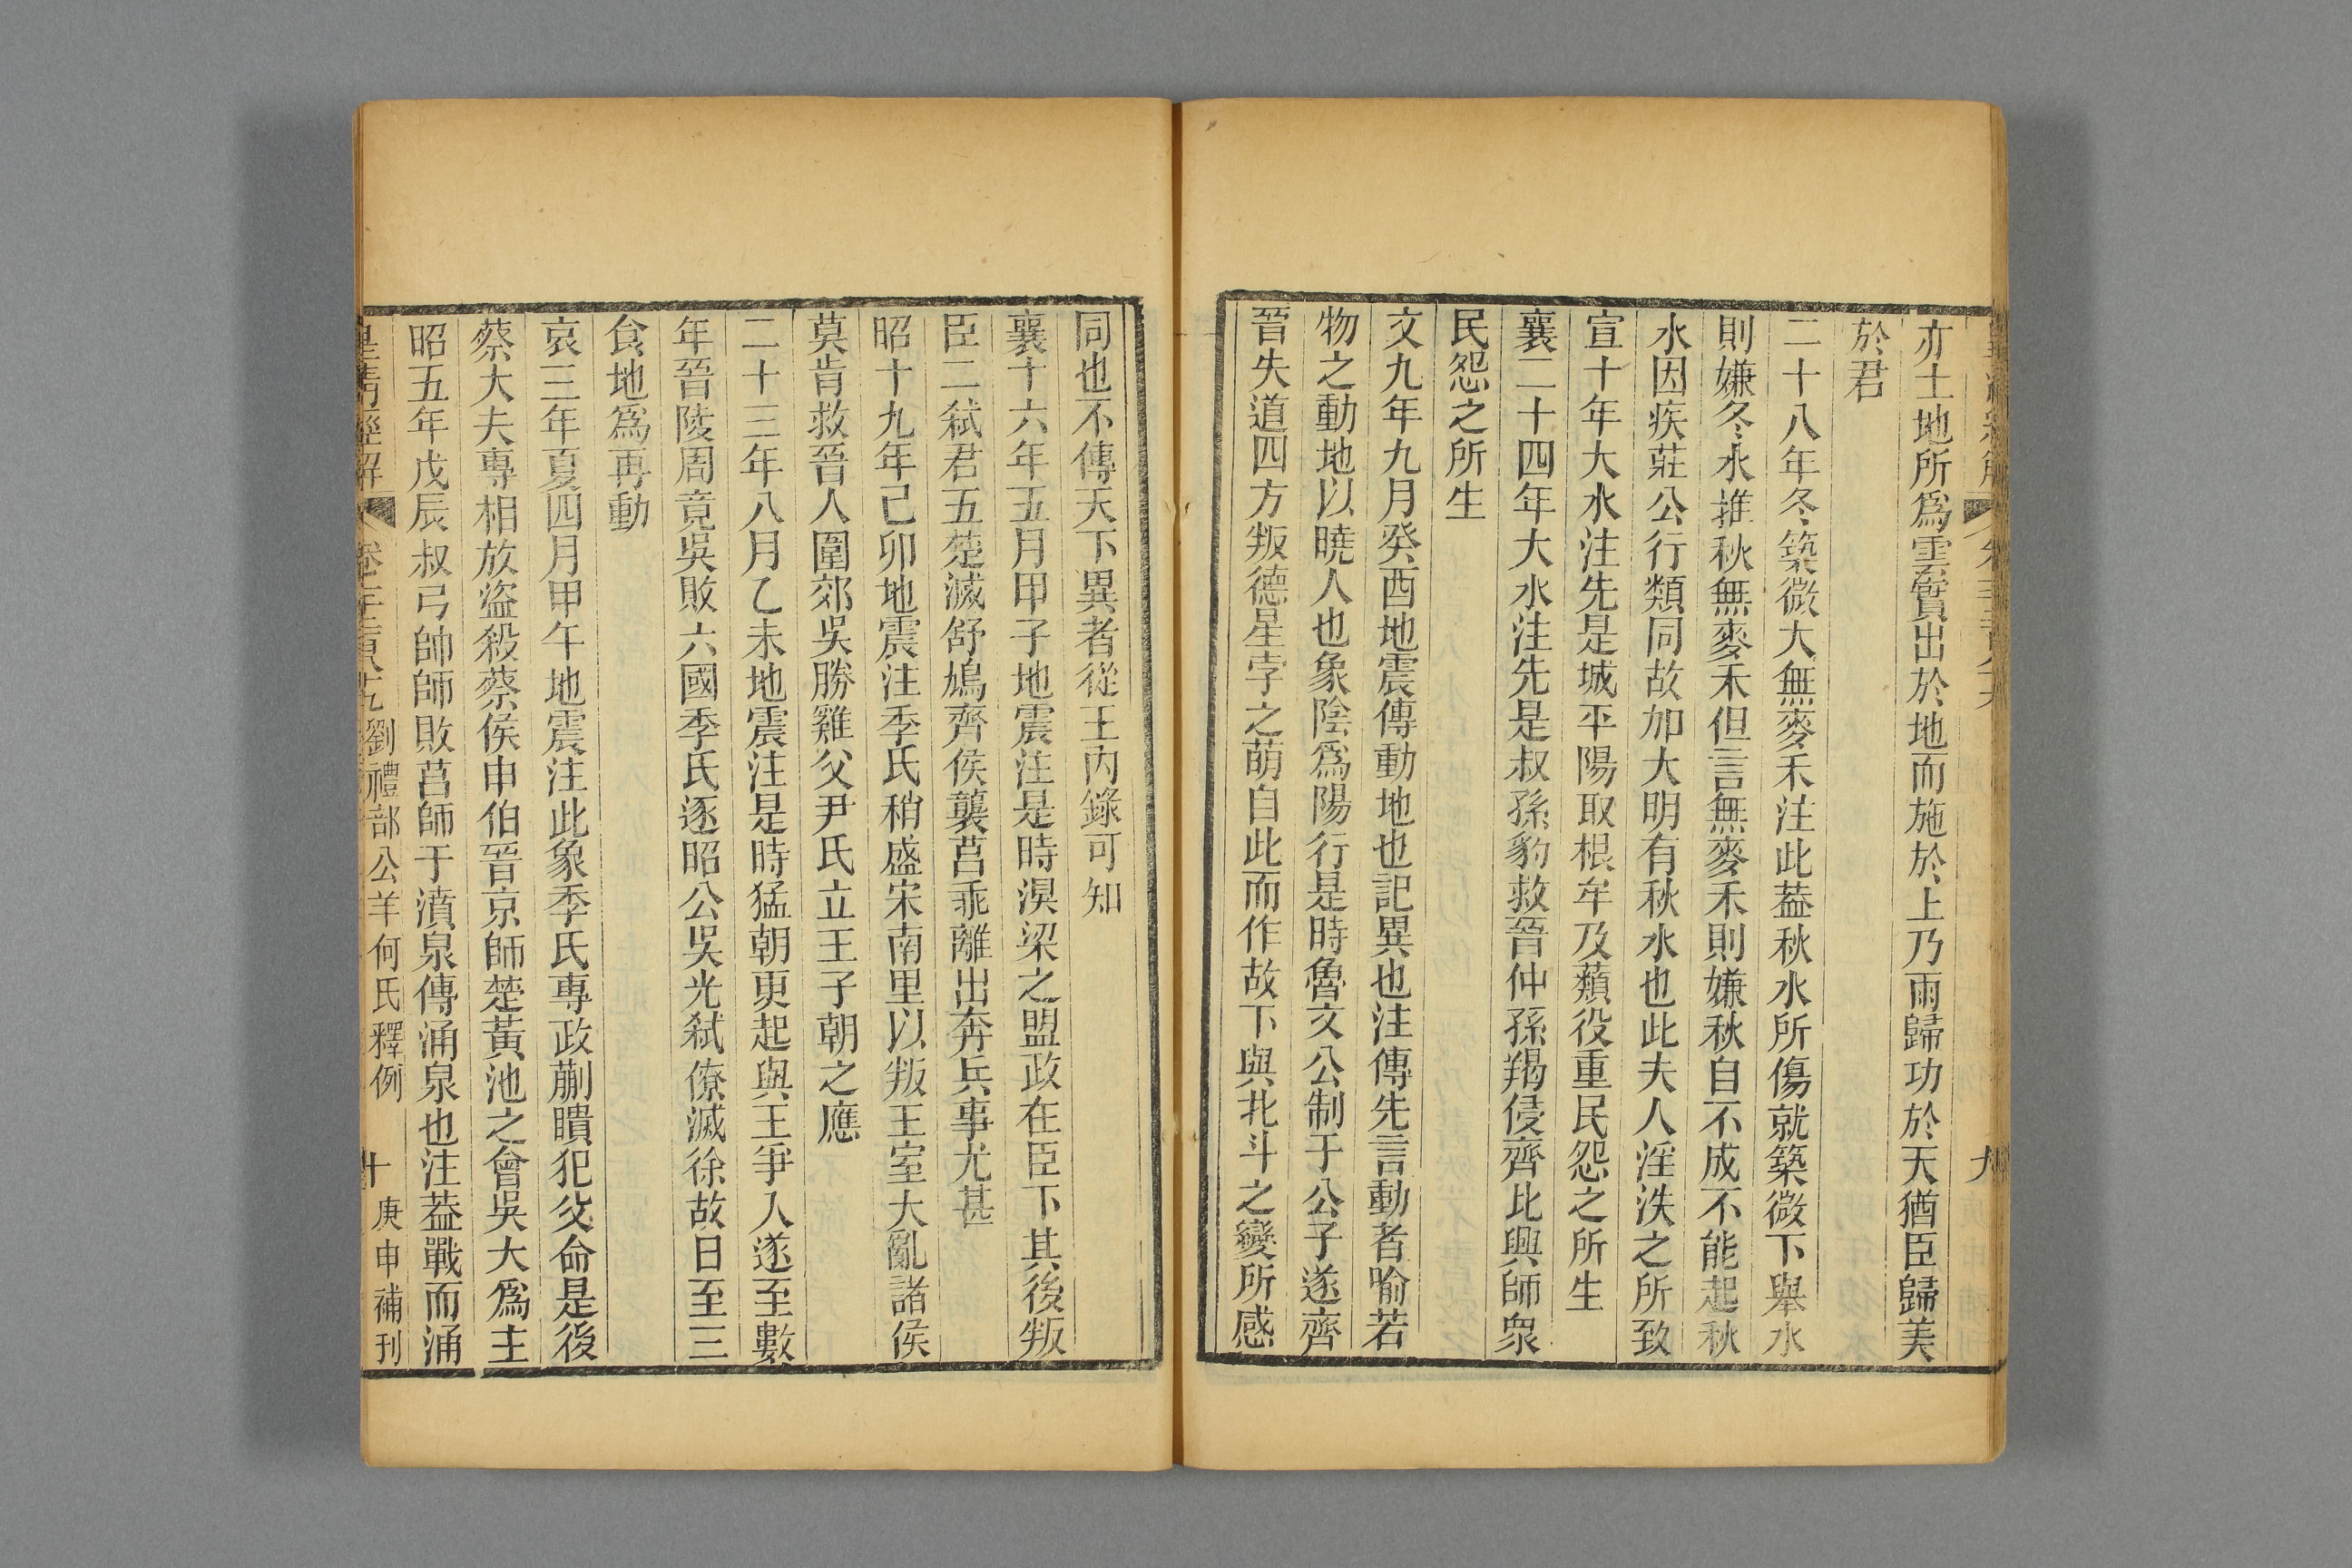 亦土地所爲雲實出於地而施於上乃雨歸功於天猶臣歸美
於君
二十八年冬築微大無麥禾注此葢秋水所傷就築微下舉水
則嫌冬水推秋無麥禾但言無麥禾則嫌秋自不成不能起秋
水因疾莊公行類同故加大明有秋水也此夫人淫泆之所致
宣十年大水注先是城平陽取根牟及蘱役重民怨之所生
襄二十四年大水注先是叔孫豹救晉仲孫羯侵齊比興師衆
民怨之所生
文九年九月癸酉地震傳動地也記異也注傳先言動者喻若
物之動地以曉人也象陰爲陽行是時魯文公制于公子遂齊
晉失道四方叛德星孛之萌自此而作故下與北斗之變所感
同也不傳天下異者從王內錄可知
襄十六年五月甲子地震注是時湨梁之盟政在臣下其後叛
臣二弑君五楚滅舒鳩齊侯襲莒乖離出奔兵事尤甚
昭十九年己卯地震注季氏稍盛宋南里以叛王室大亂諸侯
莫肯救晉人圍郊吳勝雞父尹氏立王子朝之應
二十三年八月乙未地震注是時猛朝更起與王爭入遂至數
年晉陵周竟吳敗六國季氏逐昭公吳光弑僚滅徐故日至三
食地爲再動
哀三年夏四月甲午地震注此象季氏專政蒯聵犯父命是後
蔡大夫專相放盜殺蔡侯申伯晉京師楚黃池之會吳大爲主
昭五年戊辰叔弓帥師敗莒師于濆泉傳涌泉也注葢戰而涌
皇淸經解 卷千二百八十九 劉禮部公羊何氏釋例 十 庚申補刊